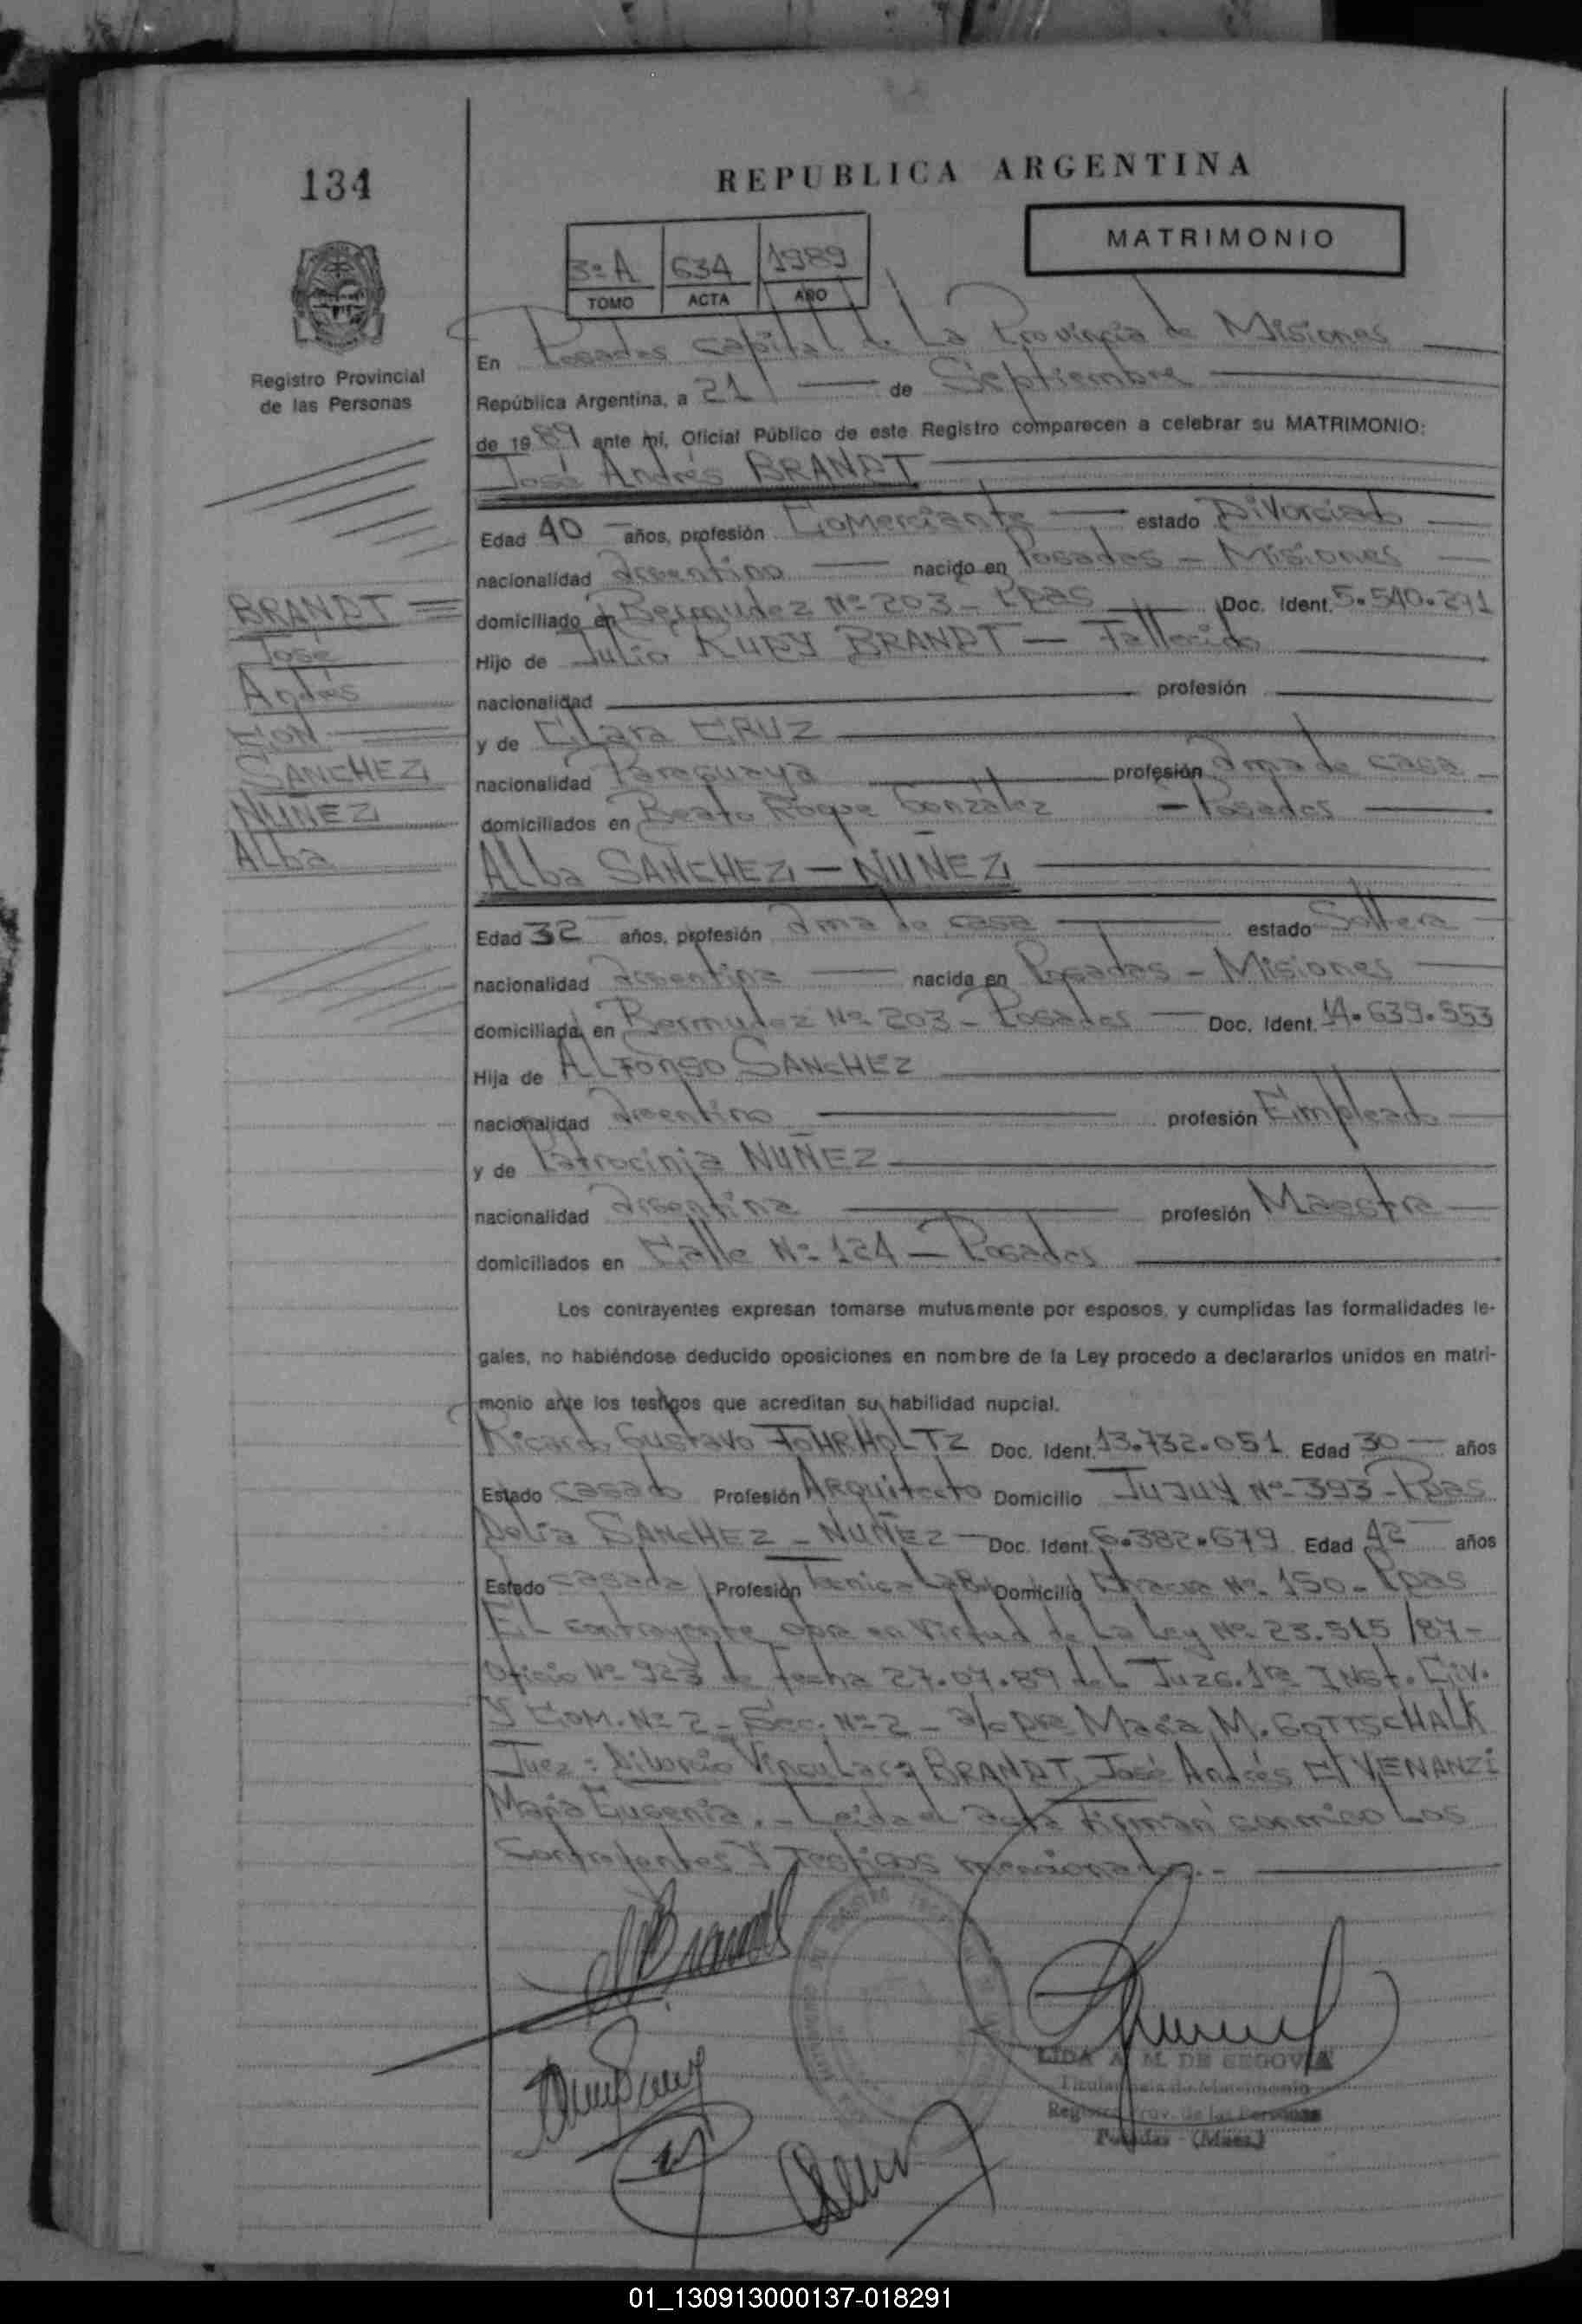 134
REPUBLICA ARGENTINA
MATRIMONIO
3º A 634 1989
TOMO ACTA AÑO
Registro Provincial
de las Personas
En Posadas capital de La Provincia de Misiones
República Argentina, a 21 de Septiembre
de 1989 ante mi, Oficial Público de este Registro comparecen a celebrar su MATRIMONIO:
José Andrés BRANDT
Edad 40 años, profesión Comerciante estado Divorciado
nacionalidad Argentino nacido en Posadas - Misiones
domiciliado en Bermudez Nº 203 - Pdas Doc. Ident. 5.540.271
Hijo de Julio RUDY BRANDT - Fallecido
nacionalidad profesión
y de Clara CRUZ
nacionalidad Paraguaya profesión Ama de casa
domiciliados en Beato Roque González - Posadas
BRANDT
José
Andrés
CON
SANCHEZ
NUÑEZ
Alba
Alba SANCHEZ - NUÑEZ
Edad 32 años, profesión Ama de casa estado Soltera
nacionalidad Argentina nacida en Posadas - Misiones
domiciliada en Bermudez Nº 203 - Posadas Doc. Ident. 14.639.553
Hija de ALFONSO SANCHEZ
nacionalidad Argentino profesión Empleado
y de Patrocinia NUÑEZ
nacionalidad Argentina profesión Maestra
domiciliados en Calle Nº 124 - Posadas
Los contrayentes expresan tomarse mutuamente por esposos, y cumplidas las formalidades le-
gales, no habiéndose deducido oposiciones en nombre de la Ley procedo a declararlos unidos en matri-
monio ante los testigos que acreditan su habilidad nupcial.
Ricardo Gustavo FOHRHOLTZ Doc. Ident. 13.732.051 Edad 30 años
Estado casado Profesión Arquitecto Domicilio JUJUY Nº 393 - Pdas
Delia SANCHEZ - NUÑEZ Doc. Ident. 6.382.679 Edad 42 años
Estado casada Profesión Tecnica Lab. Domicilio Nº 150 - Pdas
El contrayente obra en Virtud de La Ley Nº 23.515/87-
Oficio Nº 923 de fecha 27.07.89 del Juzg. 1ra INst. CiV.
Y COM. Nº 2 - Sec. Nº 2 - a/c DRa Maria M. GOTTSCHALK
Juez: Divorcio Vincular BRANDT, José Andrés C/ VENANZI
Maria Eugenia. - Leida el acta firman conmigo Los
Contrayentes Y Testigos mencionados. -
LIDA A. M. DE SEGOVIA
Titular de Matrimonio
Registro Prov. de las Personas
Posadas - (Mnes.)
01_130913000137-018291